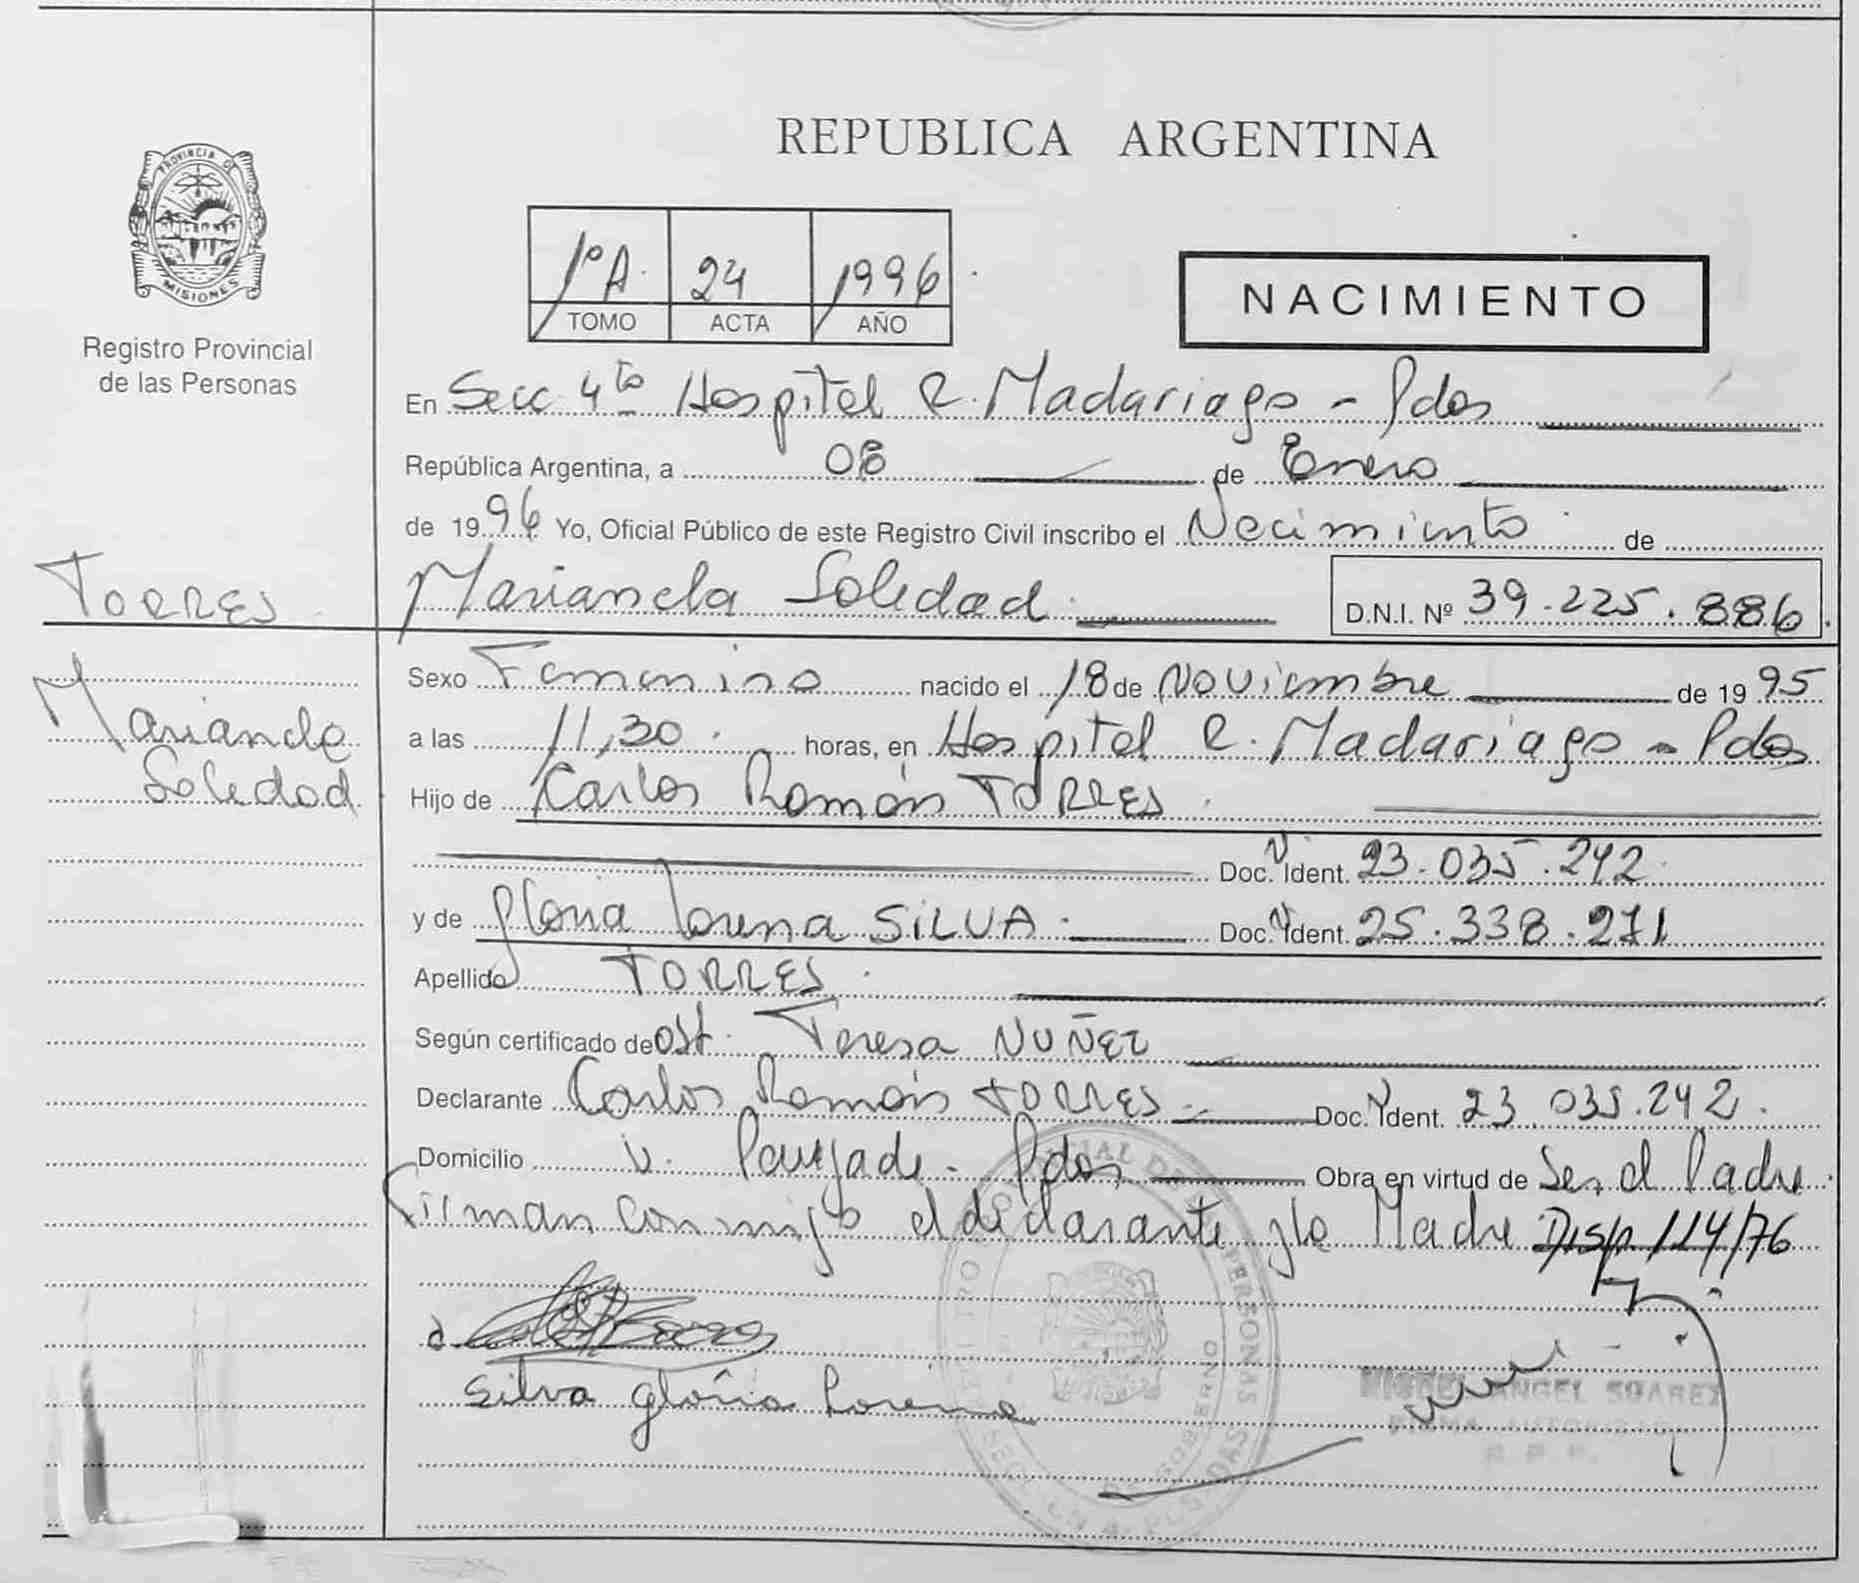 REPUBLICA ARGENTINA
PROVINCIA DE
MISIONES
Registro Provincial
de las Personas
1º A. 24 1996
TOMO ACTA AÑO
NACIMIENTO
En Secc 4to Hospital R. Madariaga - Pdas
República Argentina, a 08 de Enero
de 1996 Yo, Oficial Público de este Registro Civil inscribo el Nacimiento de
TORRES
Marianela Soledad D.N.I. Nº 39.225.886
Marianela
Soledad
Sexo Femenino nacido el 18 de Noviembre de 1995
a las 11,30 horas, en Hospital R. Madariaga - Pdas
Hijo de Carlos Ramón TORRES
Doc. Ident. 23.035.242
y de Gloria Lorena SILVA Doc. Ident. 25.338.271
Apellido TORRES
Según certificado de Ost. Teresa NUÑEZ
Declarante Carlos Ramón TORRES Doc. Ident. 23.035.242
Domicilio Pdas Obra en virtud de Ser el Padre
Firman conmigo el declarante y la Madre Disp. 114/76
Silva Gloria Lorena
MIGUEL ANGEL SUAREZ
FIRMA AUTORIZADA
R. P. P.